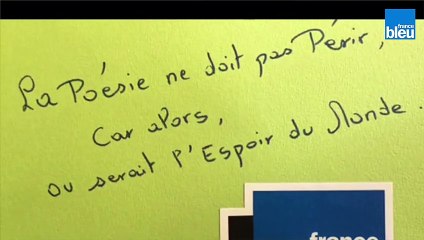 france
bleu
La Poésie ne doit pas Périr,
Car alors,
où serait l'Espoir du Monde.
france